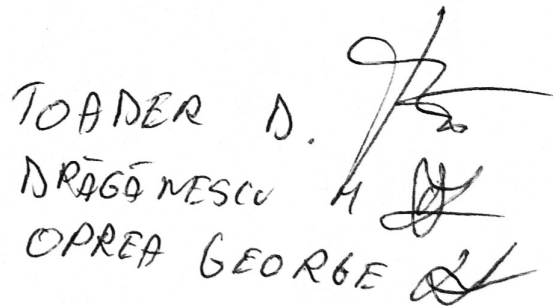 TOADER D.
DRĂGĂNESCU M
OPREA GEORGE